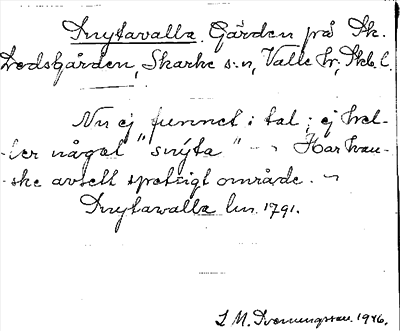 Snytavalla. Gärden på St.
Lodsgården, Skarke s:n, Valle hr, Skb. l.
Nu ej funnet i tal; ej hel-
ler något "snýta" ~ Har kan-
ske avsett spetsigt område. ~
Snytawalla lm. 1791.
L. M. 1946.